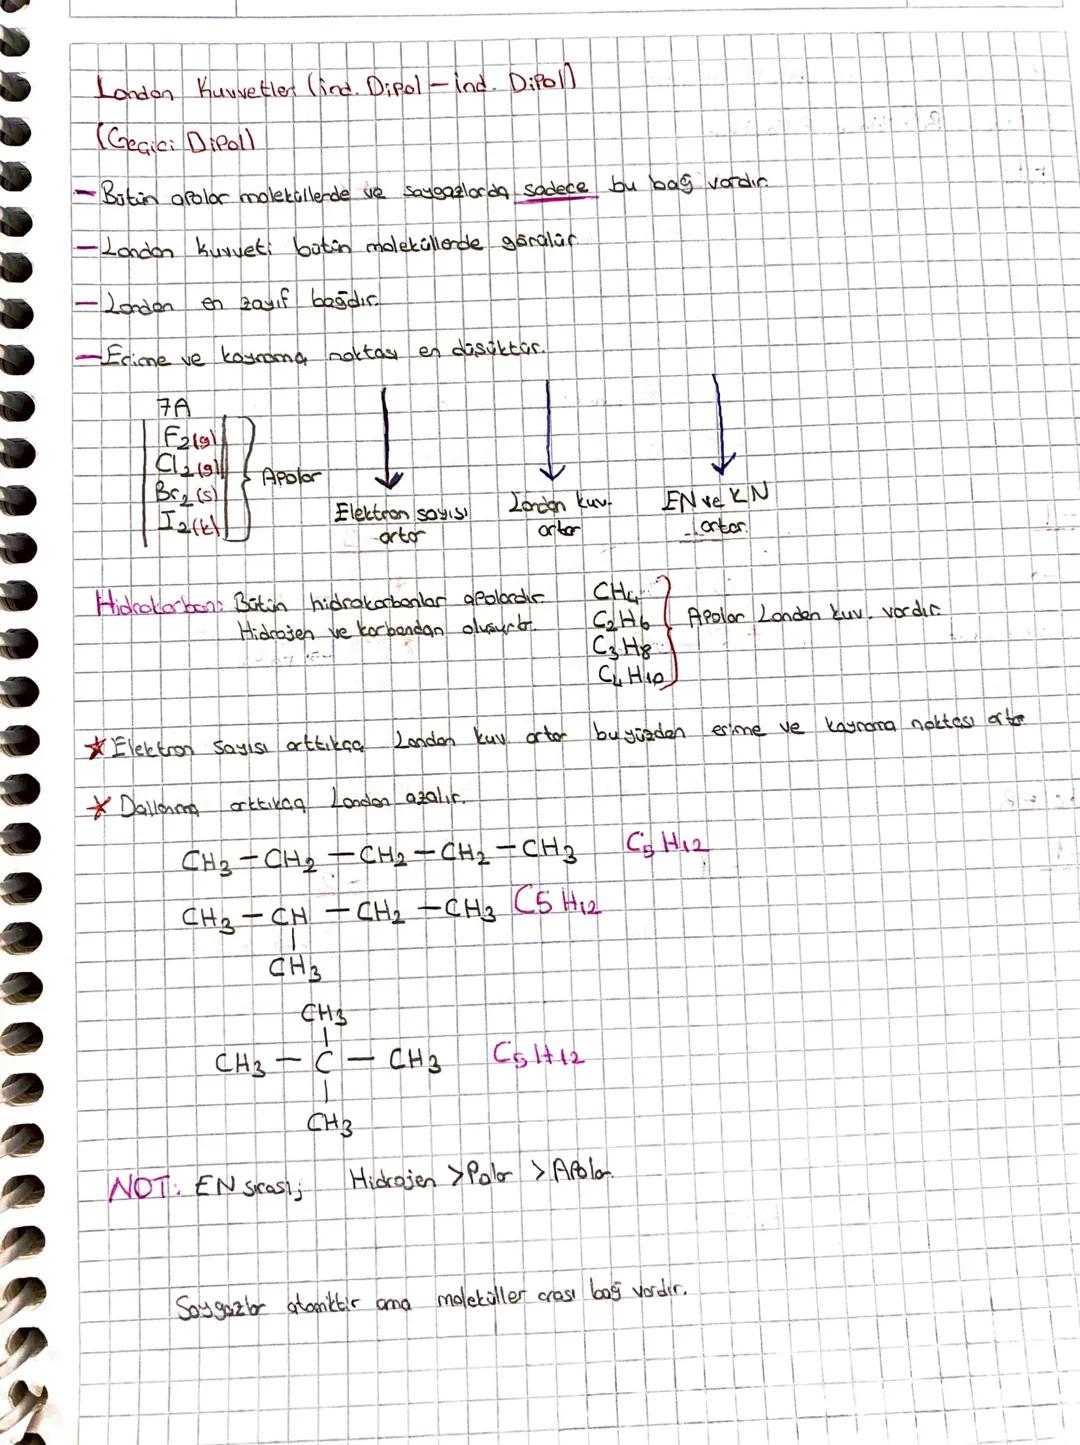 London Kuvvetler (ind. Dipol – ind. Dipol)
(Geçici Dipol)
– Bütün apolar moleküllerde ve soygazlarda sadece bu bağ vardır.
– London kuvveti bütün moleküllerde görülür
– London en zayıf bağdır.
– Erime ve kaynama noktası en düşüktür.
7A
F2(g)
Cl2(g)
Br2(s)
I2(k)
Apolar
Elektron sayısı artar
London kuv. artar
EN ve KN artar.
Hidrokarbon: Bütün hidrokarbonlar apolardır
Hidrojen ve karbondan oluşur.
CH4
C2H6
C3H8
C4H10
Apolar London kuv. vardır.
* Elektron sayısı arttıkça London kuv. artar bu yüzden erime ve kaynama noktası artar
* Dallanma arttıkça London azalır.
CH3 – CH2 – CH2 – CH2 – CH3 C5H12
CH3 – CH – CH2 – CH3 C5H12
|
CH3
CH3
|
CH3 – C – CH3 C5H12
|
CH3
NOT: EN sırası; Hidrojen > Polar > Apolar.
Soygazlar atomiktir ama moleküller arası bağ vardır.